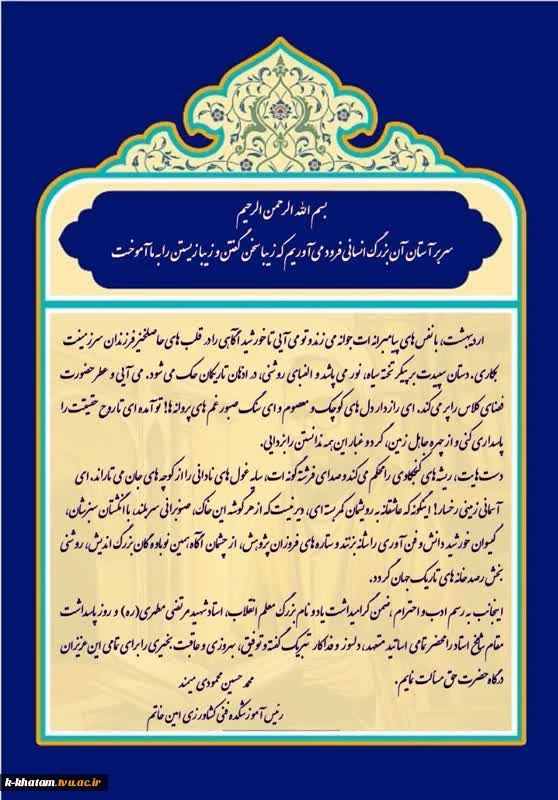 بسم الله الرحمن الرحیم
سر بر آستان آن بزرگ انسانی فرود می آوریم که زیبا سخن گفتن و زیبا زیستن را به ما آموخت
اردیبهشت، با نفس های پیامبرانه ات جوانه می زند و تو می آیی تا خورشید آگاهی را در قلب های حاصلخیز فرزندان سرزمینت
بکاری. دستان سپیدت بر پیکر تخته سیاه، نور می پاشد و الفبای روشنی، در اذهان تاریکمان حک می شود. می آیی و عطر حضورت
فضای کلاس را پر می کند. ای رازدار دل های کوچک و معصوم و ای سنگ صبور غم های پروانه ها! تو آمده ای تا روح حقیقت را
پاسداری کنی و از چهره جاهل زمین، گرد و غبار این همه ندانستن را بزدایی.
دست هایت، ریشه های کنجکاوی را محکم می کند و صدای فرشته گونه ات، سایه غول های نادانی را از کوچه های جان می تاراند. ای
آسمانی زمینی رخسار! اینگونه که عاشقانه به رویشمان کمر بسته ای، دیر نیست که از هر گوشه این خاک، صنوبرانی سربلند، با انگشتان سبزشان،
گیسوان خورشید دانش و فن آوری را شانه بزنند و ستاره های فروزان پژوهش، از چشمان آگاه همین نوباوه گان بزرگ اندیش، روشنی
بخش رصد خانه های تاریک جهان گردد.
اینجانب به رسم ادب و احترام، ضمن گرامیداشت یاد و نام بزرگ معلم انقلاب، استاد شهید مرتضی مطهری(ره) و روز پاسداشت
مقام شامخ استاد را محضر تمامی اساتید متعهد، دلسوز و فداکار تبریک گفته و توفیق، بهروزی و عاقبت بخیری را برای تمامی این عزیزان
درگاه حضرت حق مسالت نمایم.
محمد حسین محمودی میمند
رئیس آموزشکده فنی کشاورزی امین خاتم
k-khatam.tvu.ac.ir